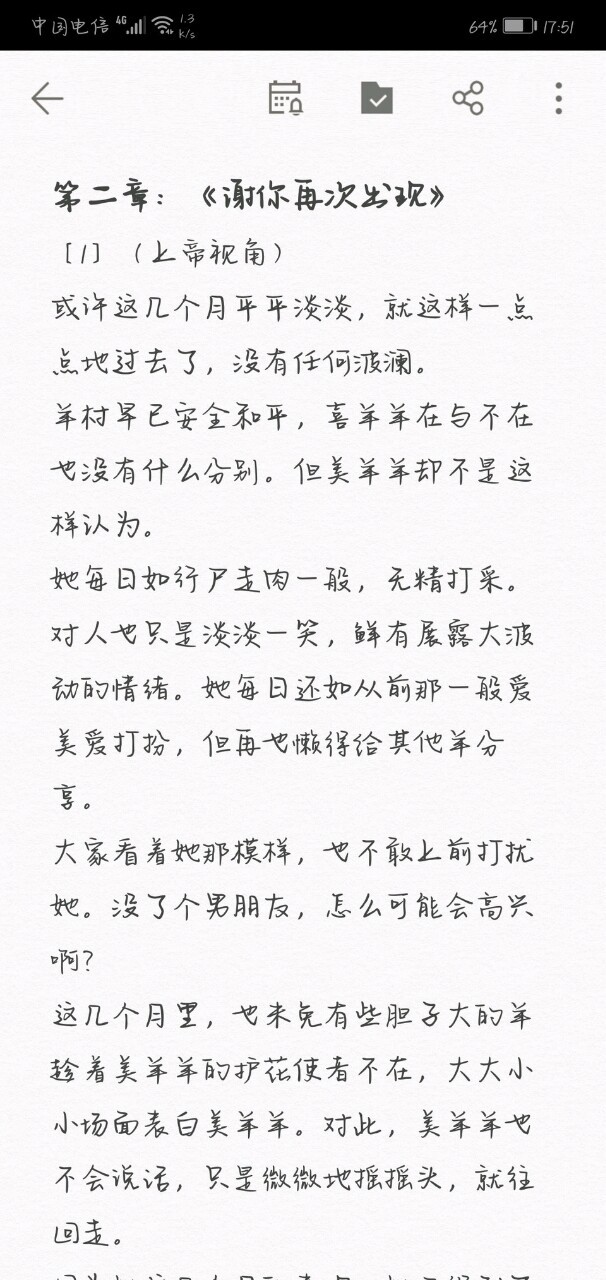 中国电信 4G 1.3 K/s 64% 17:51
第二章：《谢你再次出现》
［1］（上帝视角）
或许这几个月平平淡淡，就这样一点
点地过去了，没有任何波澜。
羊村早已安全和平，喜羊羊在与不在
也没有什么分别。但美羊羊却不是这
样认为。
她每日如行尸走肉一般，无精打采。
对人也只是淡淡一笑，鲜有展露大波
动的情绪。她每日还如从前那一般爱
美爱打扮，但再也懒得给其他羊分
享。
大家看着她那模样，也不敢上前打扰
她。没了个男朋友，怎么可能会高兴
啊？
这几个月里，也未免有些胆子大的羊
趁着美羊羊的护花使者不在，大大小
小场面表白美羊羊。对此，美羊羊也
不会说话，只是微微地摇摇头，就往
回走。